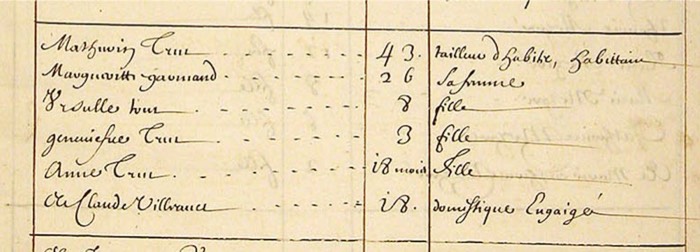 Mathurin Trut 43. tailleur d'habitz, habittain
Margueritte garmand 26 sa femme
Ursulle trut 8 fille
geneviefve Trut 3 fille
Anne Trut 18 mois. fille
Claude Villeraut 18. domistique Engaigé